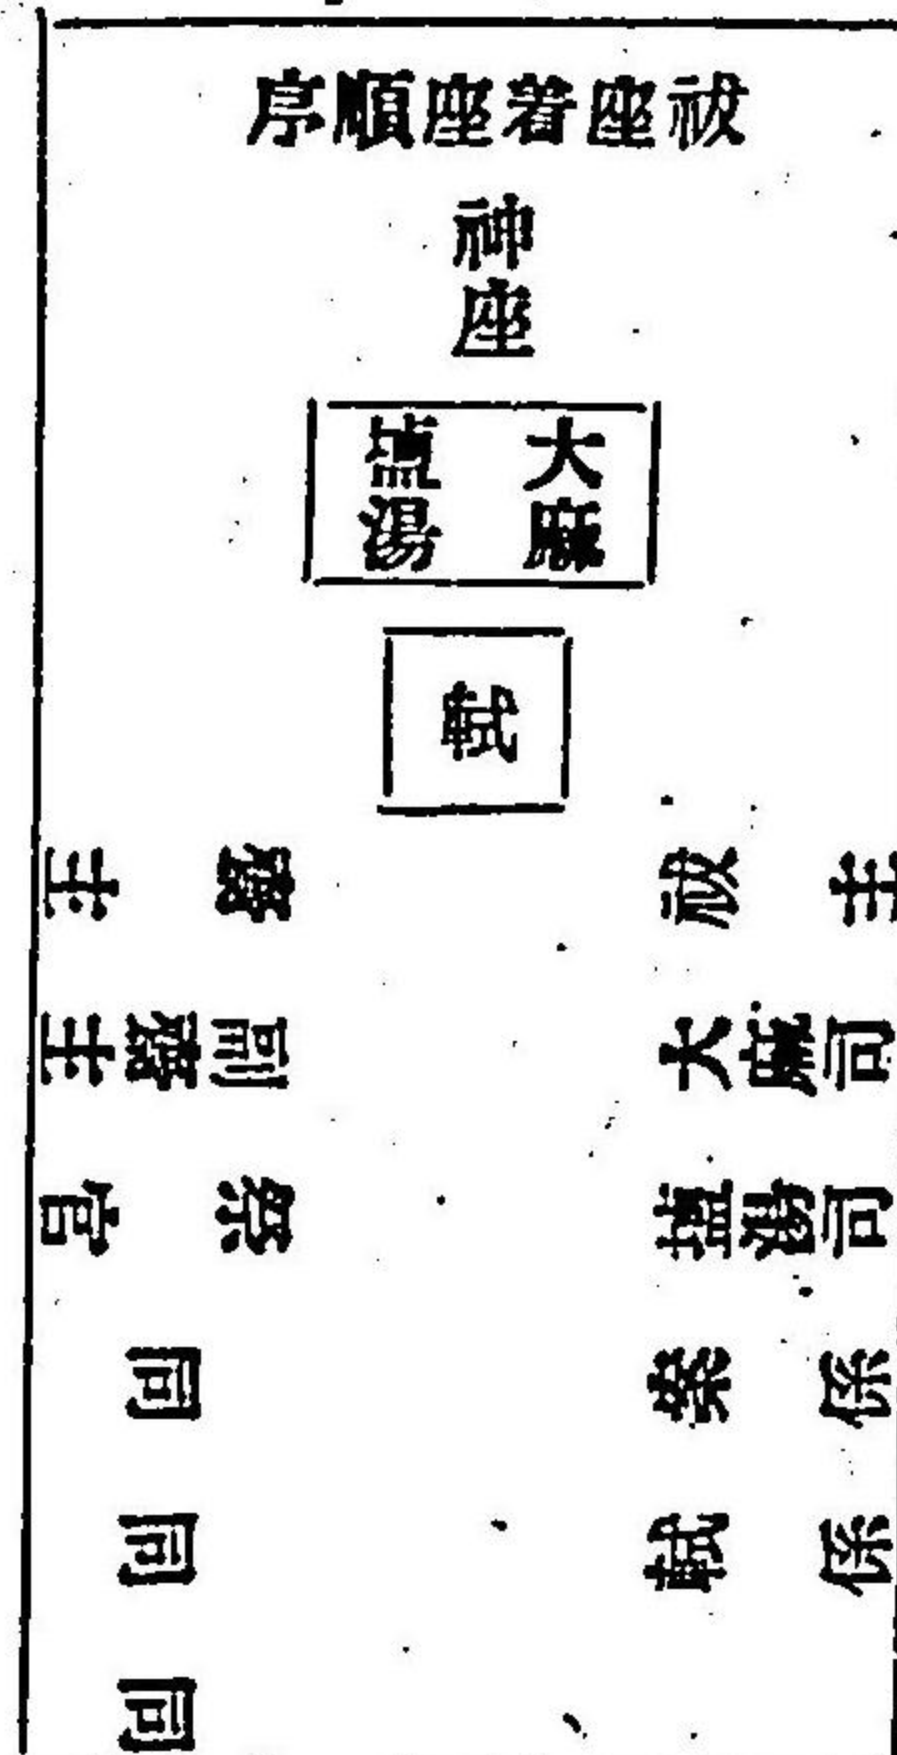 祓座着座順序
神座
大麻
塩湯
軾
祓主
大麻司
塩湯司
案係
軾係
齋主
副齋主
祭官
同
同
同